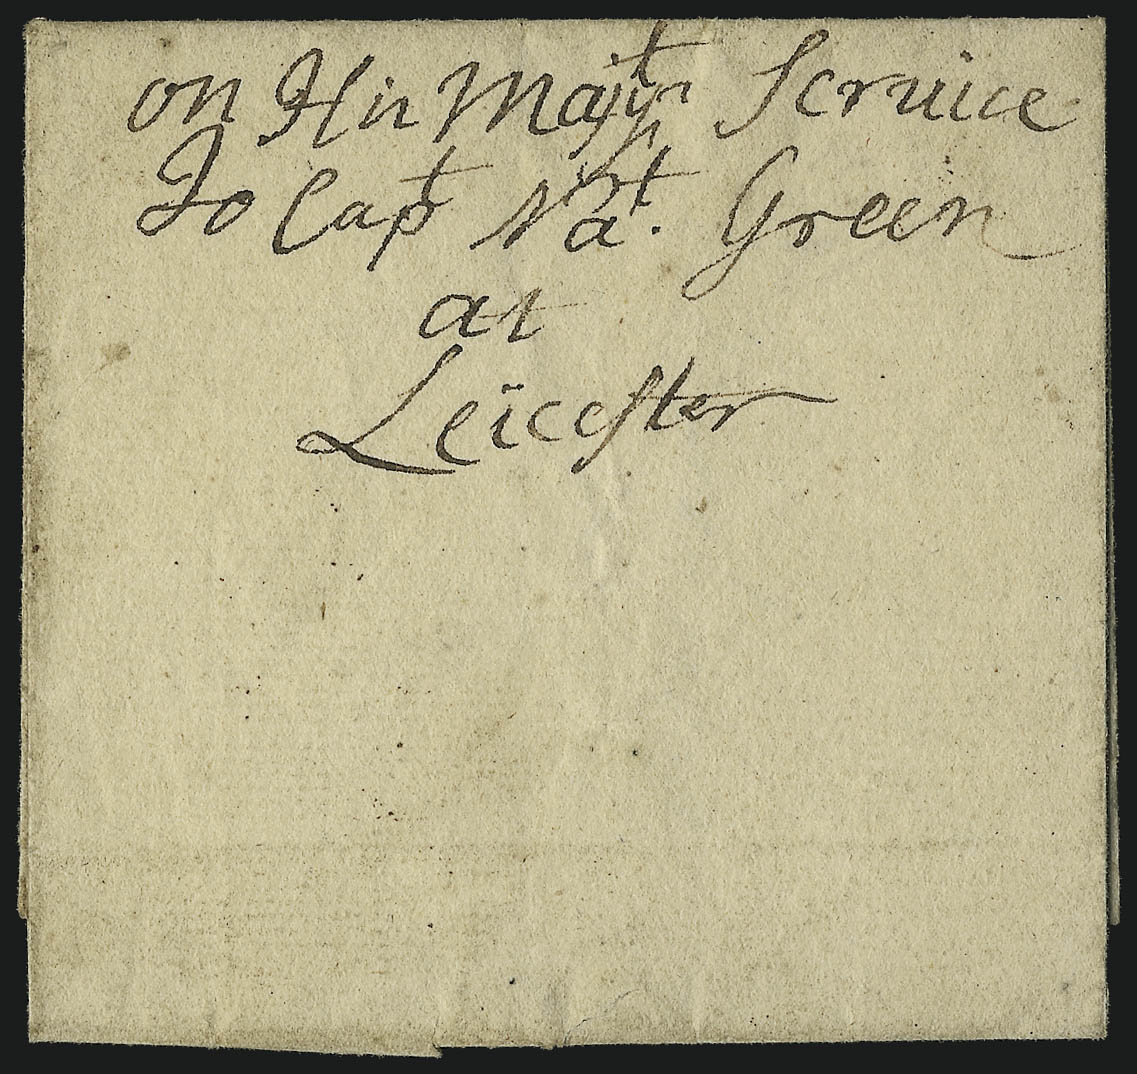 on His Maj:tys Service
To Capt Nat. Green
at
Leicester